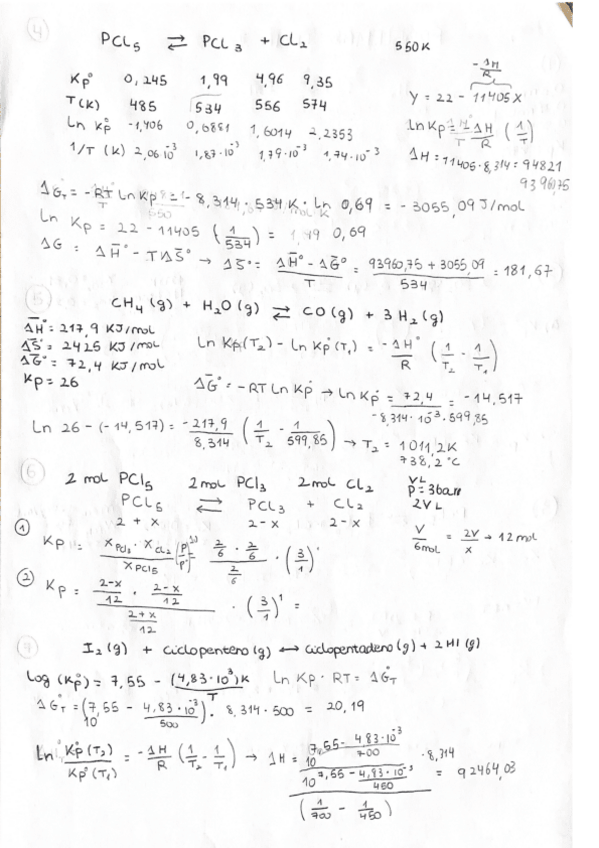 4
PCL5 ⇌ PCL3 + CL2 550K
Kp° 0,245 1,99 4,96 9,35
T(K) 485 534 556 574
ln Kp° -1,406 0,6881 1,6014 2,2353
1/T (K) 2,06·10⁻³ 1,87·10⁻³ 1,79·10⁻³ 1,74·10⁻³
-ΔH/R
Y = 22 - 11405x
ln Kp = ΔH/R (1/T)
ΔH = 11405·8,314 = 94821
93960,75
ΔG°T = -RT ln Kp° = -8,314·534 K·ln 0,69 = -3055,09 J/mol
ln Kp = 22 - 11405 (1/534) = 1,49 0,69
ΔG = ΔH° - TΔS° → ΔS° = (ΔH° - ΔG°)/T = (93960,75 + 3055,09)/534 = 181,67
5
CH4 (g) + H2O (g) ⇌ CO (g) + 3 H2 (g)
ΔH° = 217,9 KJ/mol
ΔS° = 2425 KJ/mol
ΔG° = 72,4 KJ/mol
Kp = 26
ln Kp(T2) - ln Kp°(T1) = -ΔH°/R (1/T2 - 1/T1)
ΔG° = -RT ln Kp° → ln Kp° = 72,4/(-8,314·10⁻³·599,85) = -14,517
ln 26 - (-14,517) = -217,9/8,314 (1/T2 - 1/599,85) → T2 = 1011,2K
738,2 °C
6
2 mol PCl5 2 mol PCl3 2 mol Cl2
PCL5 ⇌ PCL3 + CL2
2 + x 2 - x 2 - x
VL
P = 3bar
2VL
V/6mol = 2V/x → 12 mol
① Kp = (XPCl3 · XCL2)/XPCl5 (P/P°) = (2/6 · 2/6)/(2/6) · (3/1)¹
② Kp = ((2-x)/12 · (2-x)/12)/((2+x)/12) · (3/1)¹ =
7
I2 (g) + ciclopenteno (g) ⟷ ciclopentadeno (g) + 2 HI (g)
log (Kp°) = 7,55 - (4,83·10³)K/T ln Kp · RT = ΔG°T
ΔG°T = 10(7,55 - 4,83·10⁻³/500) · 8,314·500 = 20,19
ln Kp°(T2)/Kp°(T1) = -ΔH/R (1/T2 - 1/T1) → ΔH = (10^(7,55 - 4,83·10⁻³/700)/10^(7,55 - 4,83·10⁻³/450) · 8,314)/(1/700 - 1/450) = 92464,03